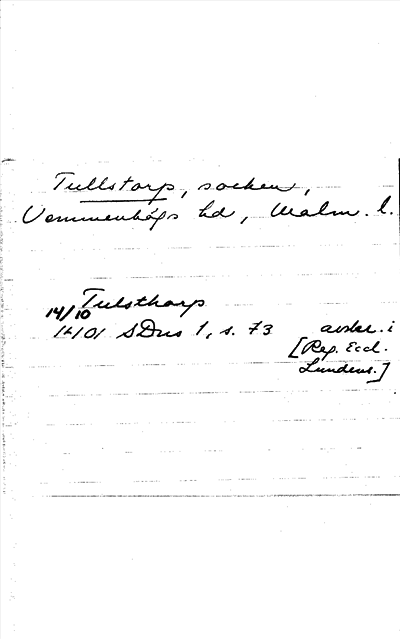 Tullstorp, socken,
Vemmenhögs hd, Malm. l.
Tulsthorp
14/10
1401 SDns 1, s. 73 avskr. i
[Reg. Eccl.
Lundens.]